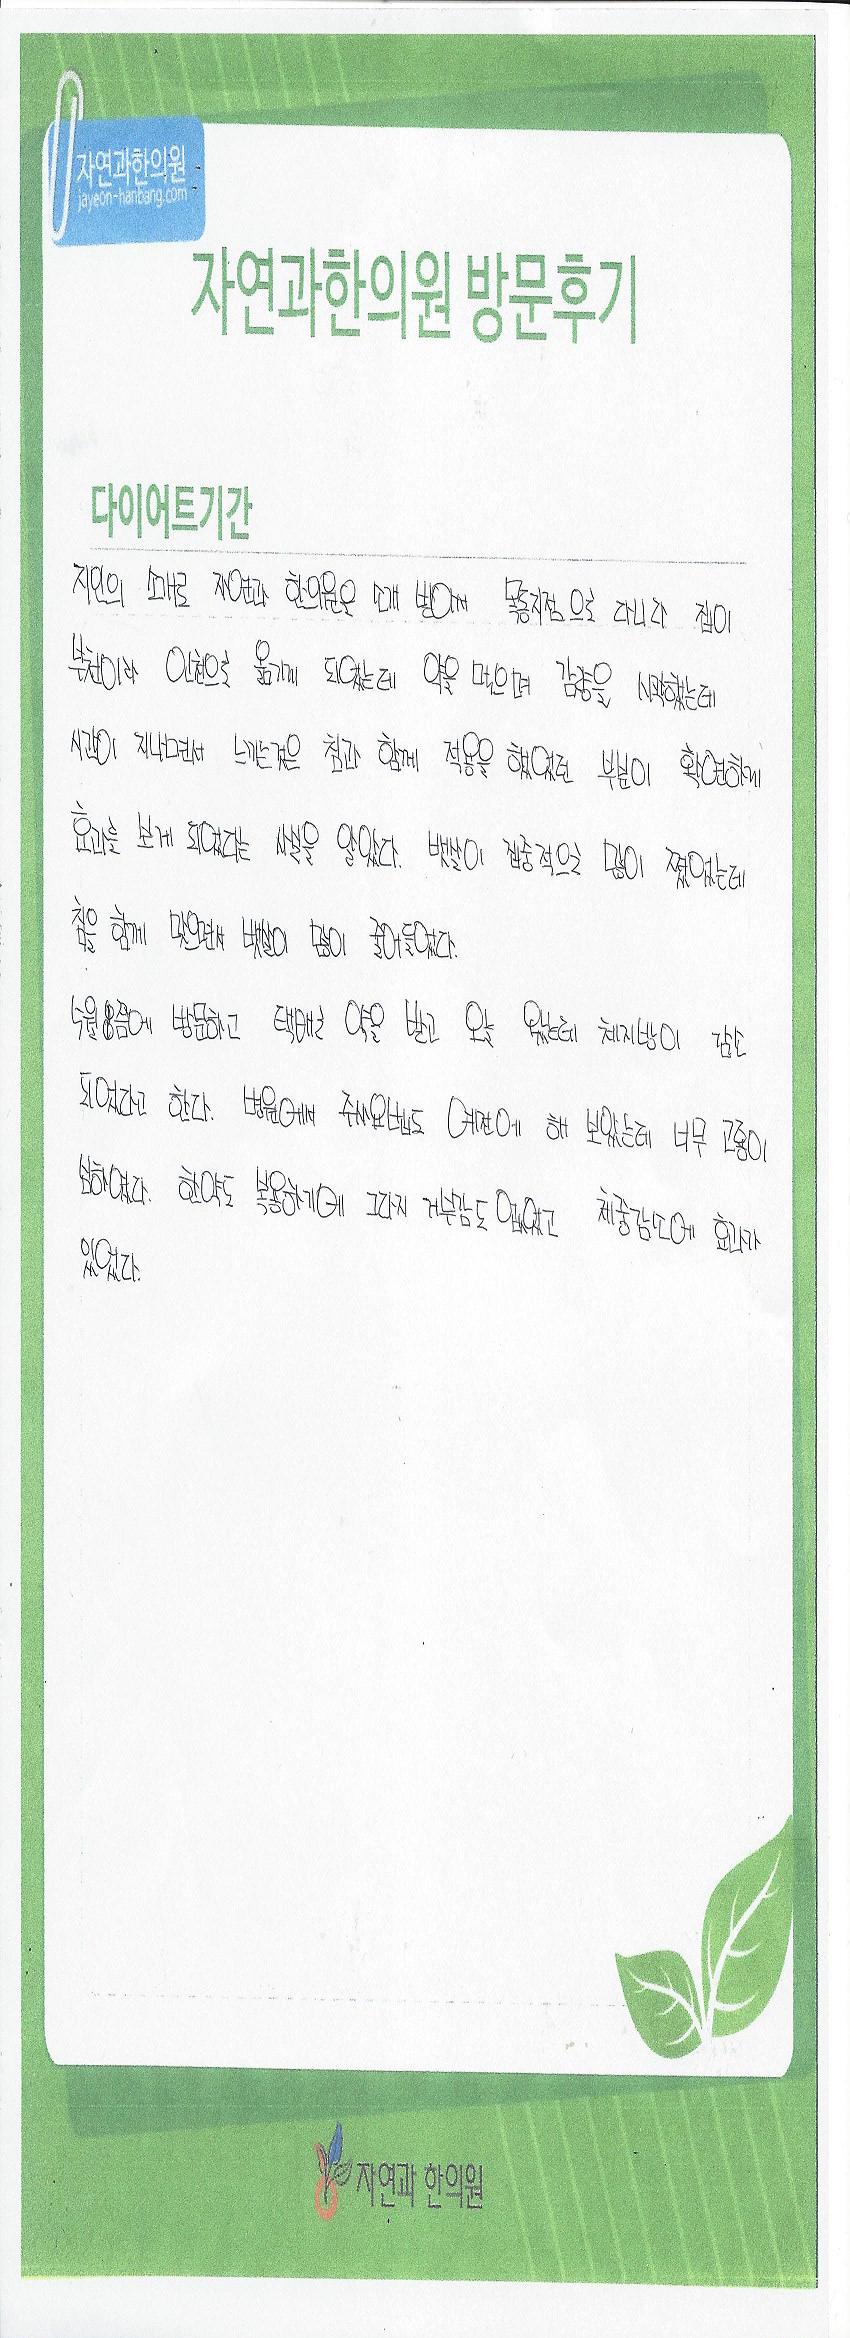 자연과한의원
jayeon-hanbang.com
자연과한의원 방문후기
다이어트기간
지인의 소개로 자연과 한의원은 소개 받아서 목동지점으로 다니다 집이
부천이라 인천으로 옮기게 되었는데 약을 먹으며 감량을 시작했는데
시간이 지내면서 느끼는것은 침과 함께 적용을 했었던 부분이 확연하게
효과를 보게 되었다는 사실을 알았다. 뱃살이 집중적으로 많이 쪘었는데
침을 함께 맞으면서 뱃살이 많이 줄어들었다.
방문하고 택배로 약을 받고 오늘 왔는데 체지방이 감소
되었다고 한다. 병원에서 주사요법도 예전에 해 보았는데 너무 고통이
심하였다. 한약도 복용하기에 그다지 거부감도 없었고 체중감소에 효과가
있었다.
자연과 한의원